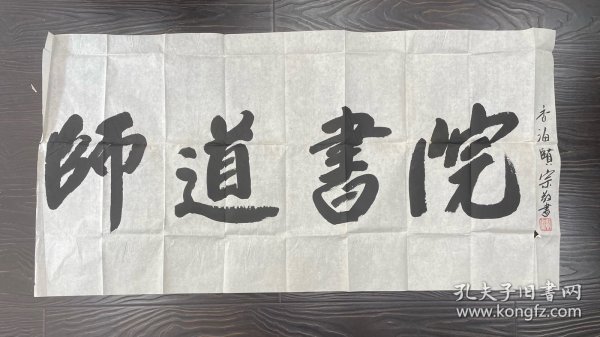 師道書院
孔夫子旧书网
www.kongfz.com